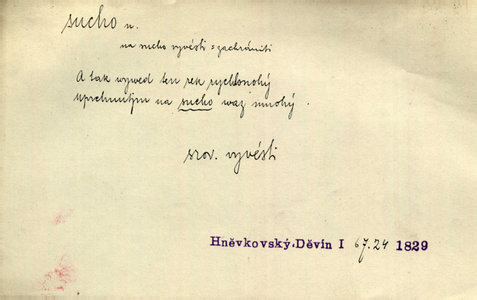 sucho n.
na sucho vyvésti = zachrániti
A tak wywed ten rek rychlonohý
uprchnutjm na sucho waz mnohý.
srov. vyvésti
Hněvkovský-Děvín I 67.24 1829